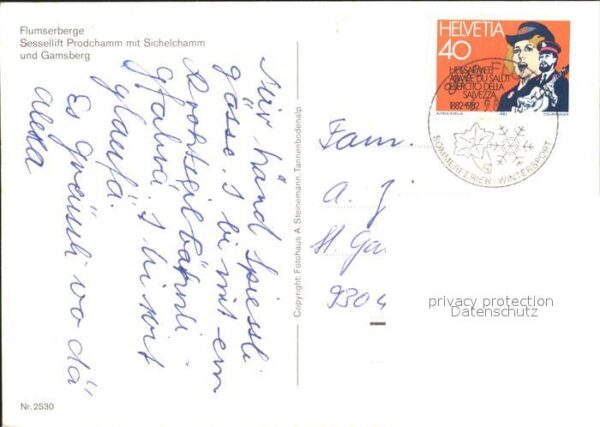 Flumserberge
Sessellift Prodchamm mit Sichelchamm
und Gamsberg
Mir händ Spiessli
gässe. I bi mit em
Drohtseilbähnli
gfahrä, I bi wit
glaufä.
Es Grüessli vo dä
Alexa
Nr. 2530
Copyright: Fotohaus A. Steinemann, Tannenbodenalp
HELVETIA
40
HEILSARMEE
ARMÉE DU SALUT
ESERCITO DELLA
SALVEZZA
1882-1982
SOMMERFERIEN · WINTERSPORT
Fam.
A.
St. Ga
9304
privacy protection
Datenschutz